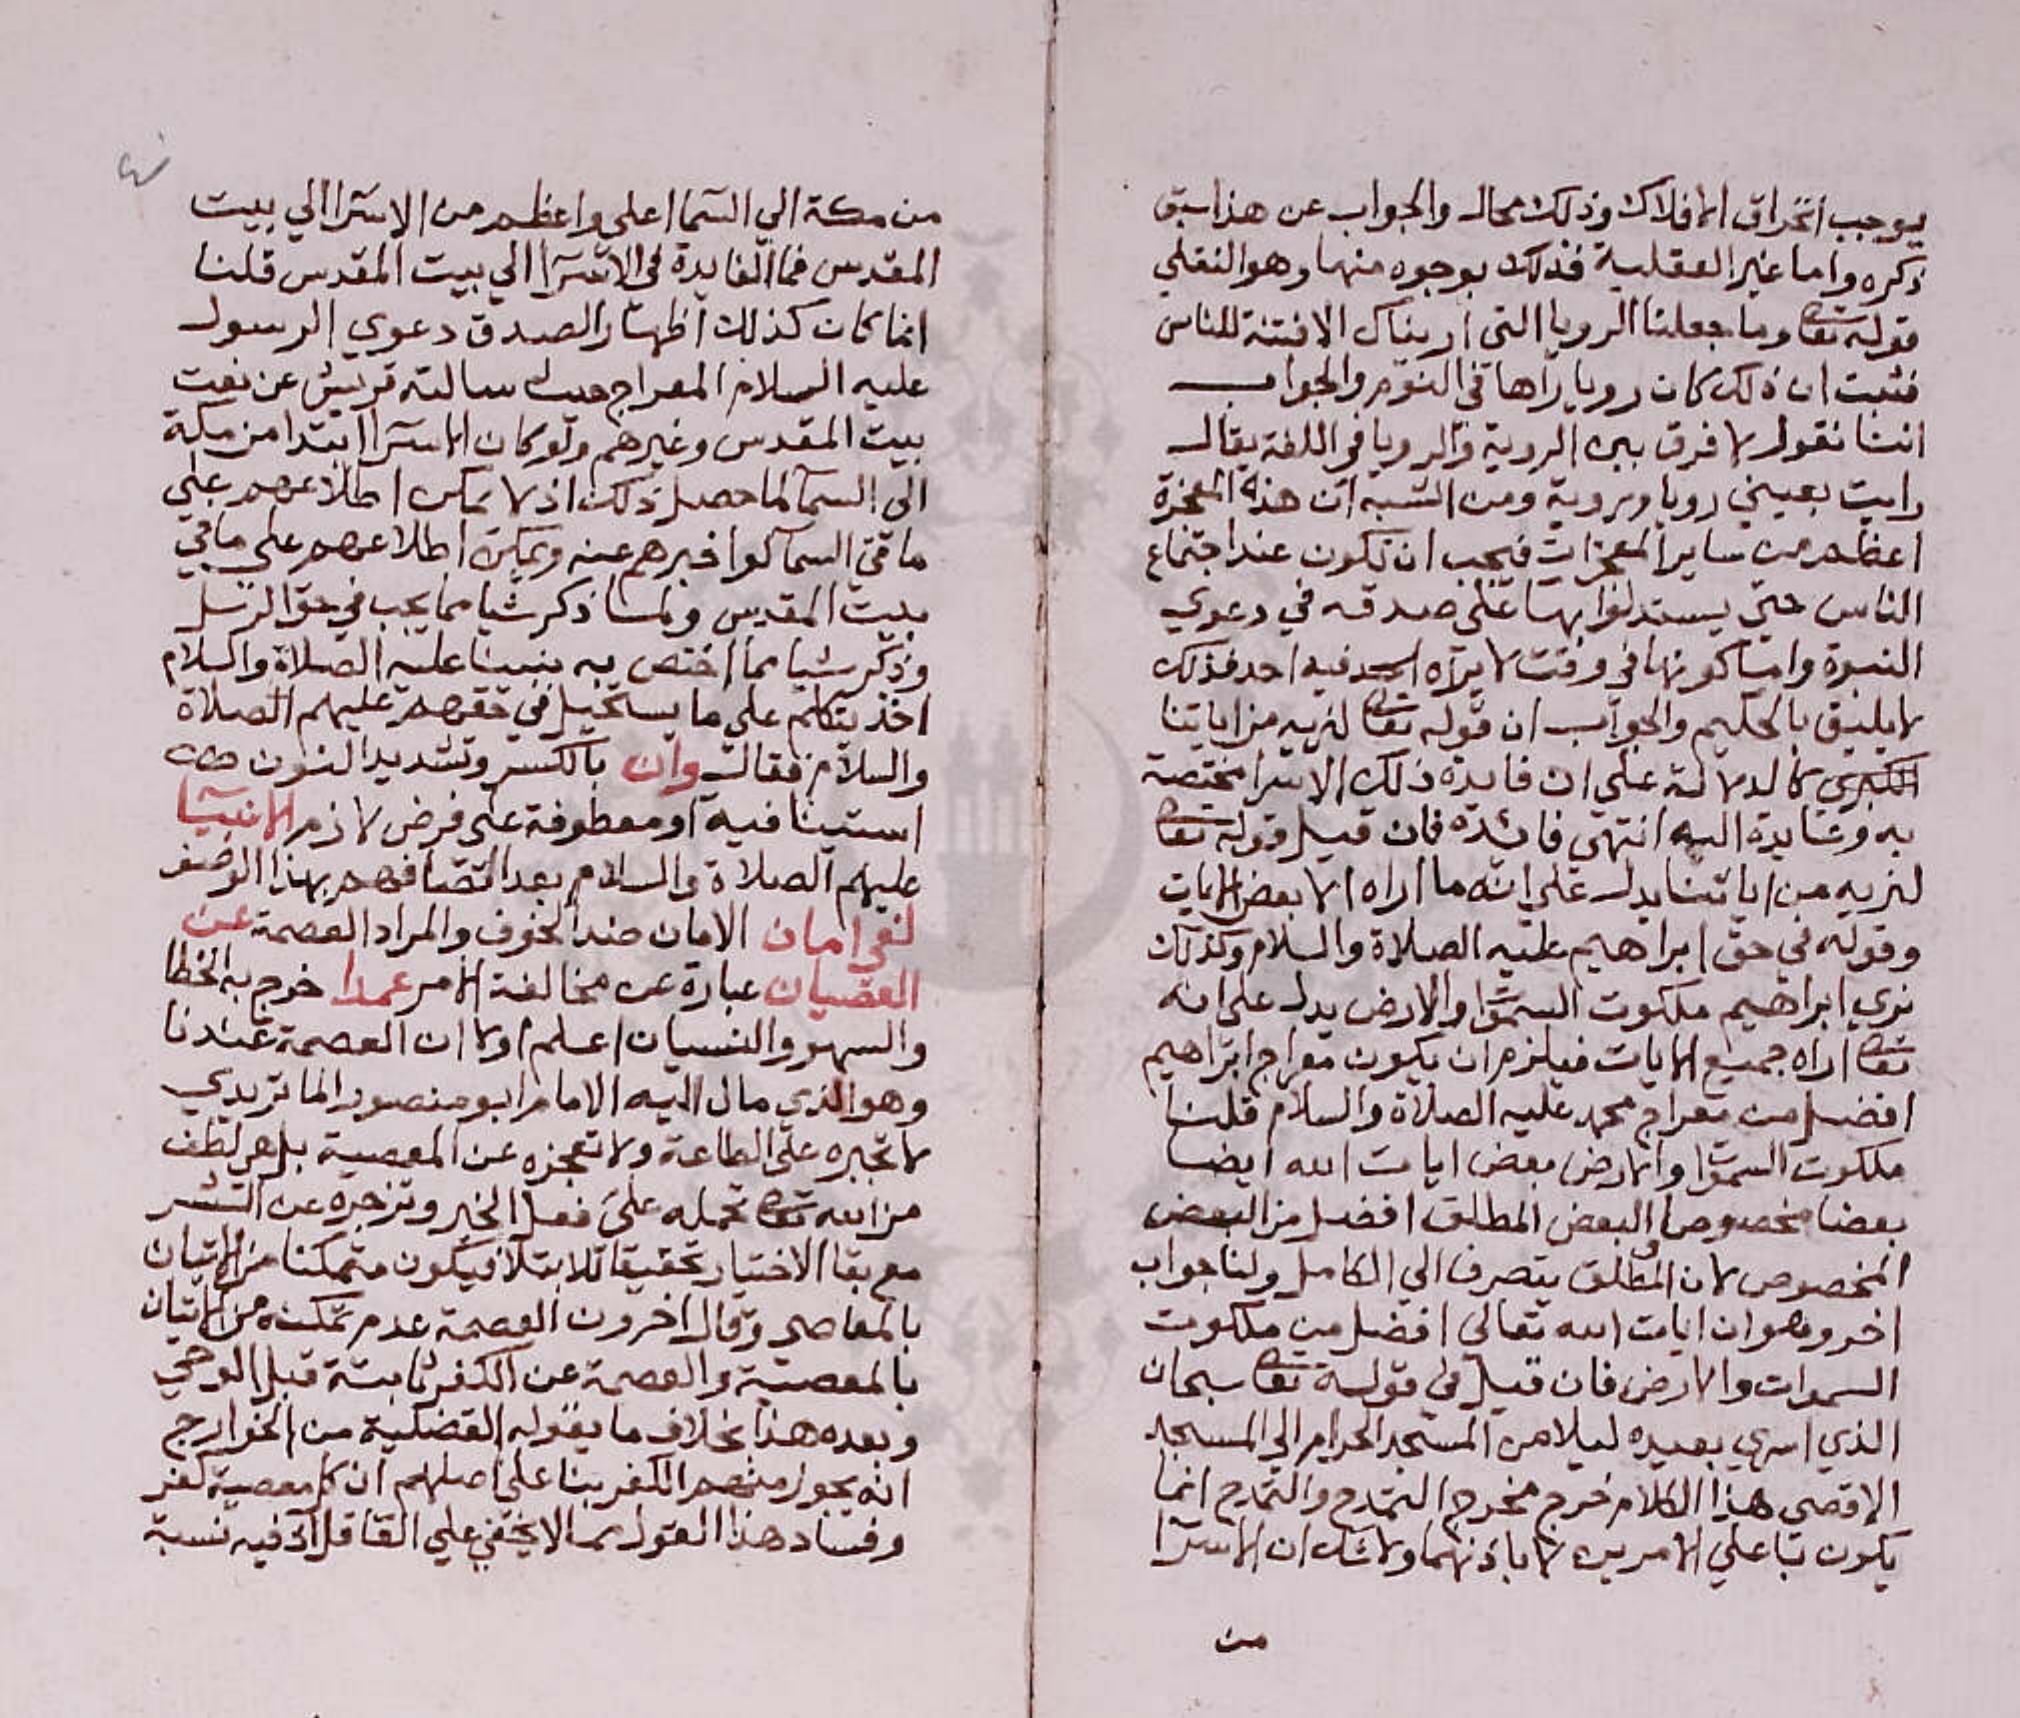 يوجب انخراق الافلاك وذلك محال والجواب عن هذا سبق
ذكره واما غير العقلية فذلك بوجوه منها وهو النقلي
قوله تعا وما جعلنا الرويا التي اريناك الا فتنة للناس
فثبت ان ذلك كان رويا راها في النوم والجواب
اننا نقول لا فرق بين الروية والرويا في اللغة يقال
رايت بعيني رويا وروية ومن الشبه ان هذه المعجزة
اعظم من ساير المعجزات فيجب ان تكون عند اجتماع
الناس حتى يستدلوا بها على صدقه في دعوي
النبوة واما كونها في وقت لا يراه احد فيه احد فذلك
لا يليق بالحكيم والجواب ان قوله تعا لنريه من اياتنا
الكبري كالدلالة علي ان فايدة ذلك الاسرا مختصة
به وعايدة اليه انتهي فائدة فان قيل قوله تعا
لنريه من اياتنا يدل علي انه ما اراه الا بعض الايات
وقوله في حق ابراهيم عليه الصلاة والسلام وكذلك
نري ابراهيم ملكوت السموا والارض يدل على انه
تعا اراه جميع الايات فيلزم ان يكون معراج ابراهيم
افضل من معراج محمد عليه الصلاة والسلام قلنا
ملكوت السموا والارض بعض ايات الله ايضا
بعضا مخصوصا والبعض المطلق افضل من البعض
المخصوص لان المطلق يتصرف الي الكامل ولنا جواب
اخر وهو ان ايات الله تعالي افضل من ملكوت
السموات والارض فان قيل في قوله تعا سبحان
الذي اسري بعبده ليلا من المسجد الحرام الي المسجد
الاقصي هذا الكلام خرج مخرج التمدح والتمدح انما
يكون باعلي الامرين لا بادنهما ولا شك ان الاسرا
من
من مكة الي السما اعلي واعظم من الاسرا الي بيت
المقدس فما الفايدة في الاسرا الي بيت المقدس قلنا
انما كان كذلك اظهار الصدق دعوي الرسول
عليه السلام المعراج حيث سالته قريش عن نعت
بيت المقدس وغيرهم ولو كان الاسرا ابتدا من مكة
الى السما لما حصل ذلك اذ لا يمكن اطلاعهم علي
ما في السما لو اخبرهم عنه ويمكن اطلاعهم علي ما في
بيت المقدس ولما ذكر شيا مما يجب في حق الرسل
وذكر شيا مما اختص به نبينا عليه الصلاة والسلام
اخذ يتكلم علي ما يستحيل في حقهم عليهم الصلاة
والسلام فقال وان بالكسر وتشديد النون
استينافية او معطوفة علي فرض لازم الانبيا
عليهم الصلاة والسلام بعد اتصافهم بهذا الوصف
لفي امان الامان ضد الخوف والمراد العصمة عن
العصيان عبارة عن مخالفة الامر عمدا خرج به الخطا
والسهو والنسيان اعلم اولا ان العصمة عندنا
وهو الذي مال اليه الامام ابو منصور الماتريدي
لا تجبره علي الطاعة ولا تعجزه عن المعصية بل هي لطف
من الله تعا تحمله على فعل الخير وتزجره عن الشر
مع بقا الاختيار تحقيقا للابتلا فيكون متمكنا من الاتيان
بالمعاصي وقال اخرون العصمة عدم تمكنه من الاتيان
بالمعصية والعصمة عن الكفر ثابتة قبل الوحي
وبعده هذا بخلاف ما يقوله الفضلية من الخوارج
انه يجوز منهم الكفر بنا علي اصلهم ان كل معصية كفر
وفساد هذا القول مما لا يخفي علي العاقل اذ فيه نسبة